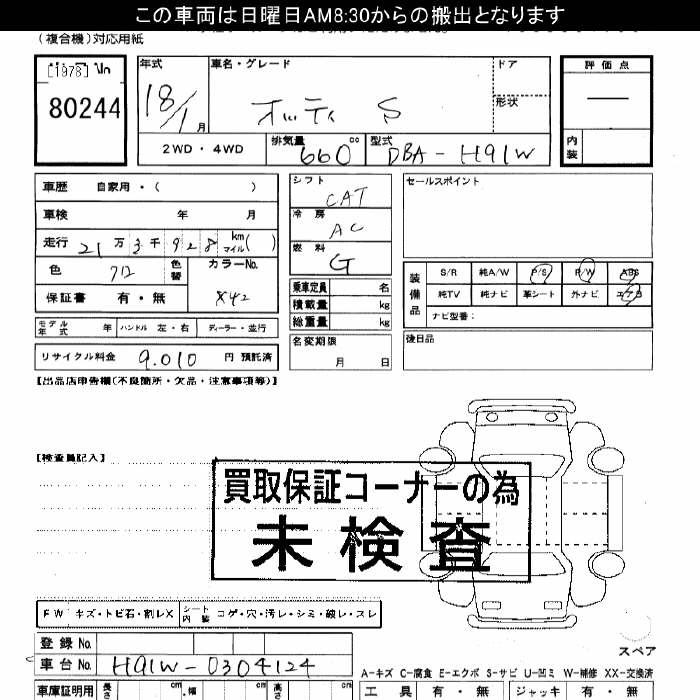 この車両は日曜日AM8:30からの搬出となります
(複合機)対応用紙
[1978]
80244
年式
18/1
月
車名・グレード
オッティ S
ドア
形状
評価点
内装
2WD・4WD
排気量
660
cc
型式
DBA-H91W
車歴 自家用・( )
車検 年 月
走行 21万3千928 km マイル( )
色
色替
カラーNo.
X42
保証書 有・無
モデル年式 年 ハンドル 左・右 ディーラー・並行
リサイクル料金 9,010 円 預託済
シフト
CAT
冷房
AC
燃料
G
乗車定員 名
積載量 kg
総重量 kg
名変期限
月 日
セールスポイント
装備品
S/R 純A/W P/S P/W ABS
純TV 純ナビ 革シート 外ナビ エアB
ナビ型番:
後日品
【出品店申告欄(不良箇所・欠品・注意事項等)】
【検査員記入】
買取保証コーナーの為
未検査
FW キズ・トビ石・割レX
シート内装 コゲ・穴・汚レ・シミ・破レ・スレ
登録No.
車台No. H91W-0304124
車庫証明用 長さ cm 幅 cm 高さ cm
スペア
A-キズ C-腐食 E-エクボ S-サビ U-凹ミ W-補修 XX-交換済
工具 有・無 ジャッキ 有・無